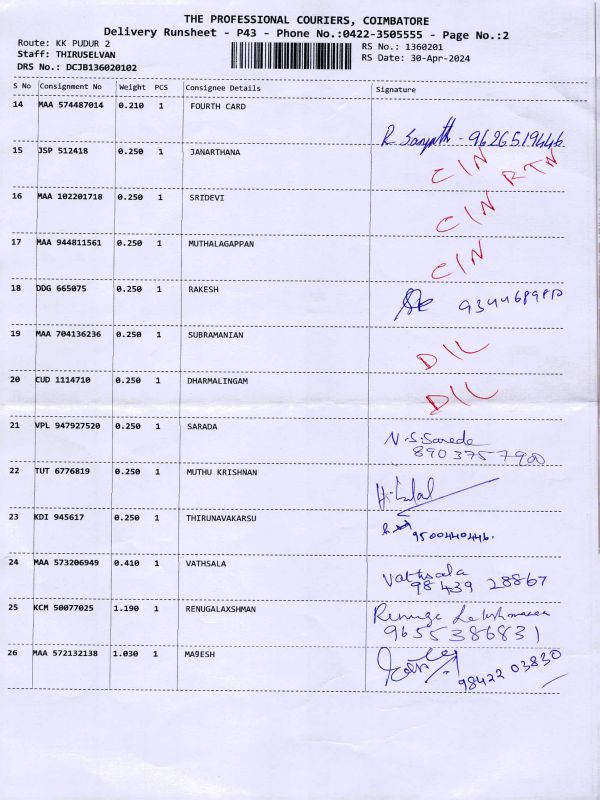 THE PROFESSIONAL COURIERS, COIMBATORE
Delivery Runsheet - P43 - Phone No.:0422-3505555 - Page No.:2
Route: KK PUDUR 2 RS No.: 1360201
Staff: THIRUSELVAN RS Date: 30-Apr-2024
DRS No.: DCJB136020102
S No Consignment No Weight PCS Consignee Details Signature
14 MAA 574487014 0.210 1 FOURTH CARD
R. Sampath - 9626519446
15 JSP 512418 0.250 1 JANARTHANA
CIN RTN
16 MAA 102201718 0.250 1 SRIDEVI
CIN
17 MAA 944811561 0.250 1 MUTHALAGAPPAN
CIN
18 DDG 665075 0.250 1 RAKESH
19 MAA 704136236 0.250 1 SUBRAMANIAN
DIL
20 CUD 1114710 0.250 1 DHARMALINGAM
DIL
21 VPL 947927520 0.250 1 SARADA
N.S.Sarada
8903757900
22 TUT 6776819 0.250 1 MUTHU KRISHNAN
23 KDI 945617 0.250 1 THIRUNAVAKARSU
9500440446.
24 MAA 573206949 0.410 1 VATHSALA
Vathsala
98439 28867
25 KCM 50077025 1.190 1 RENUGALAXSHMAN
Renuga Lakshmanan
9655386831
26 MAA 572132138 1.030 1 MA9ESH
98422 03830